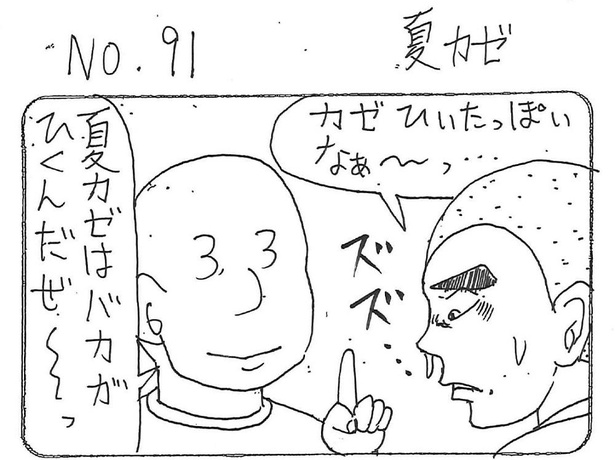 NO. 91
夏カゼ
カゼひいたっぽい
なぁ〜〜っ…
ズズ…
夏カゼはバカが
ひくんだぜ〜〜っ